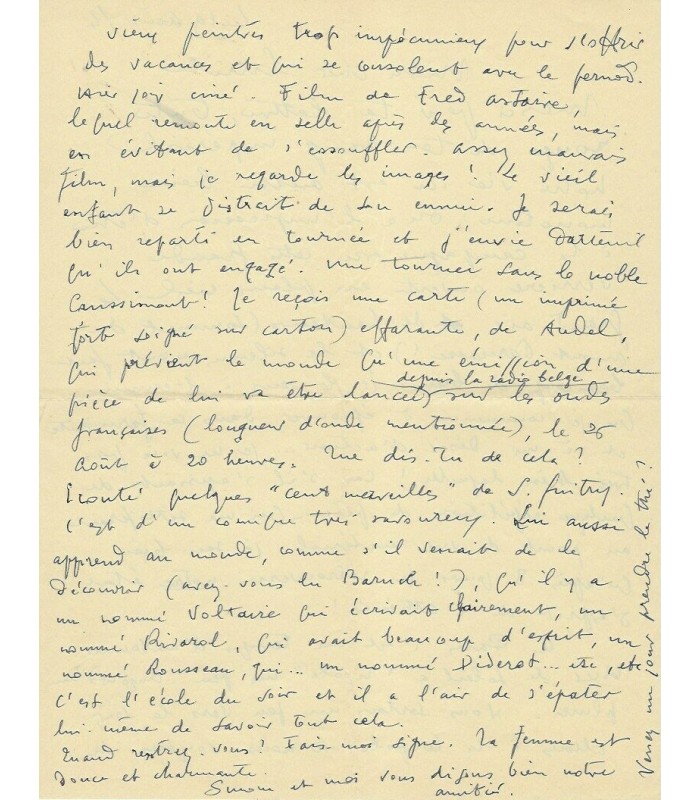 vieux peintres trop impécunieux pour s'offrir
des vacances et qui se consolent avec le pernod.
Hier soir ciné. Film de Fred Astaire,
lequel remonte en selle après des années, mais
en évitant de s'essouffler. Assez mauvais
film, mais je regarde les images! Le vieil
enfant se distrait de son ennui. Je serais
bien reparti en tournée et j'envie Darteuil
qu'ils ont engagé. Une tournée sans le noble
Caussimont! Je reçois une carte (un imprimé
fort soigné sur carton) effarante, de Audel,
qui prévient le monde qu'une émission d'une
depuis la radio belge
pièce de lui va être lancée sur les ondes
françaises (longueur d'onde mentionnée), le 26
Août à 20 heures. Que dis-tu de cela?
Écouté quelques "cent merveilles" de S. Guitry.
C'est d'un comique très savoureux. Lui aussi
apprend au monde, comme s'il venait de le
découvrir (avez-vous lu Baruch!) qu'il y a
un nommé Voltaire qui écrivait clairement, un
nommé Rivarol, qui avait beaucoup d'esprit, un
nommé Rousseau, qui... un nommé Diderot... etc, etc
C'est l'école du soir et il a l'air de s'épater
lui-même de savoir tout cela.
Quand rentrez-vous? Fais-moi signe. Ta femme est
douce et charmante.
Simone et moi vous disons bien notre
amitié.
Venez un jour prendre le thé?